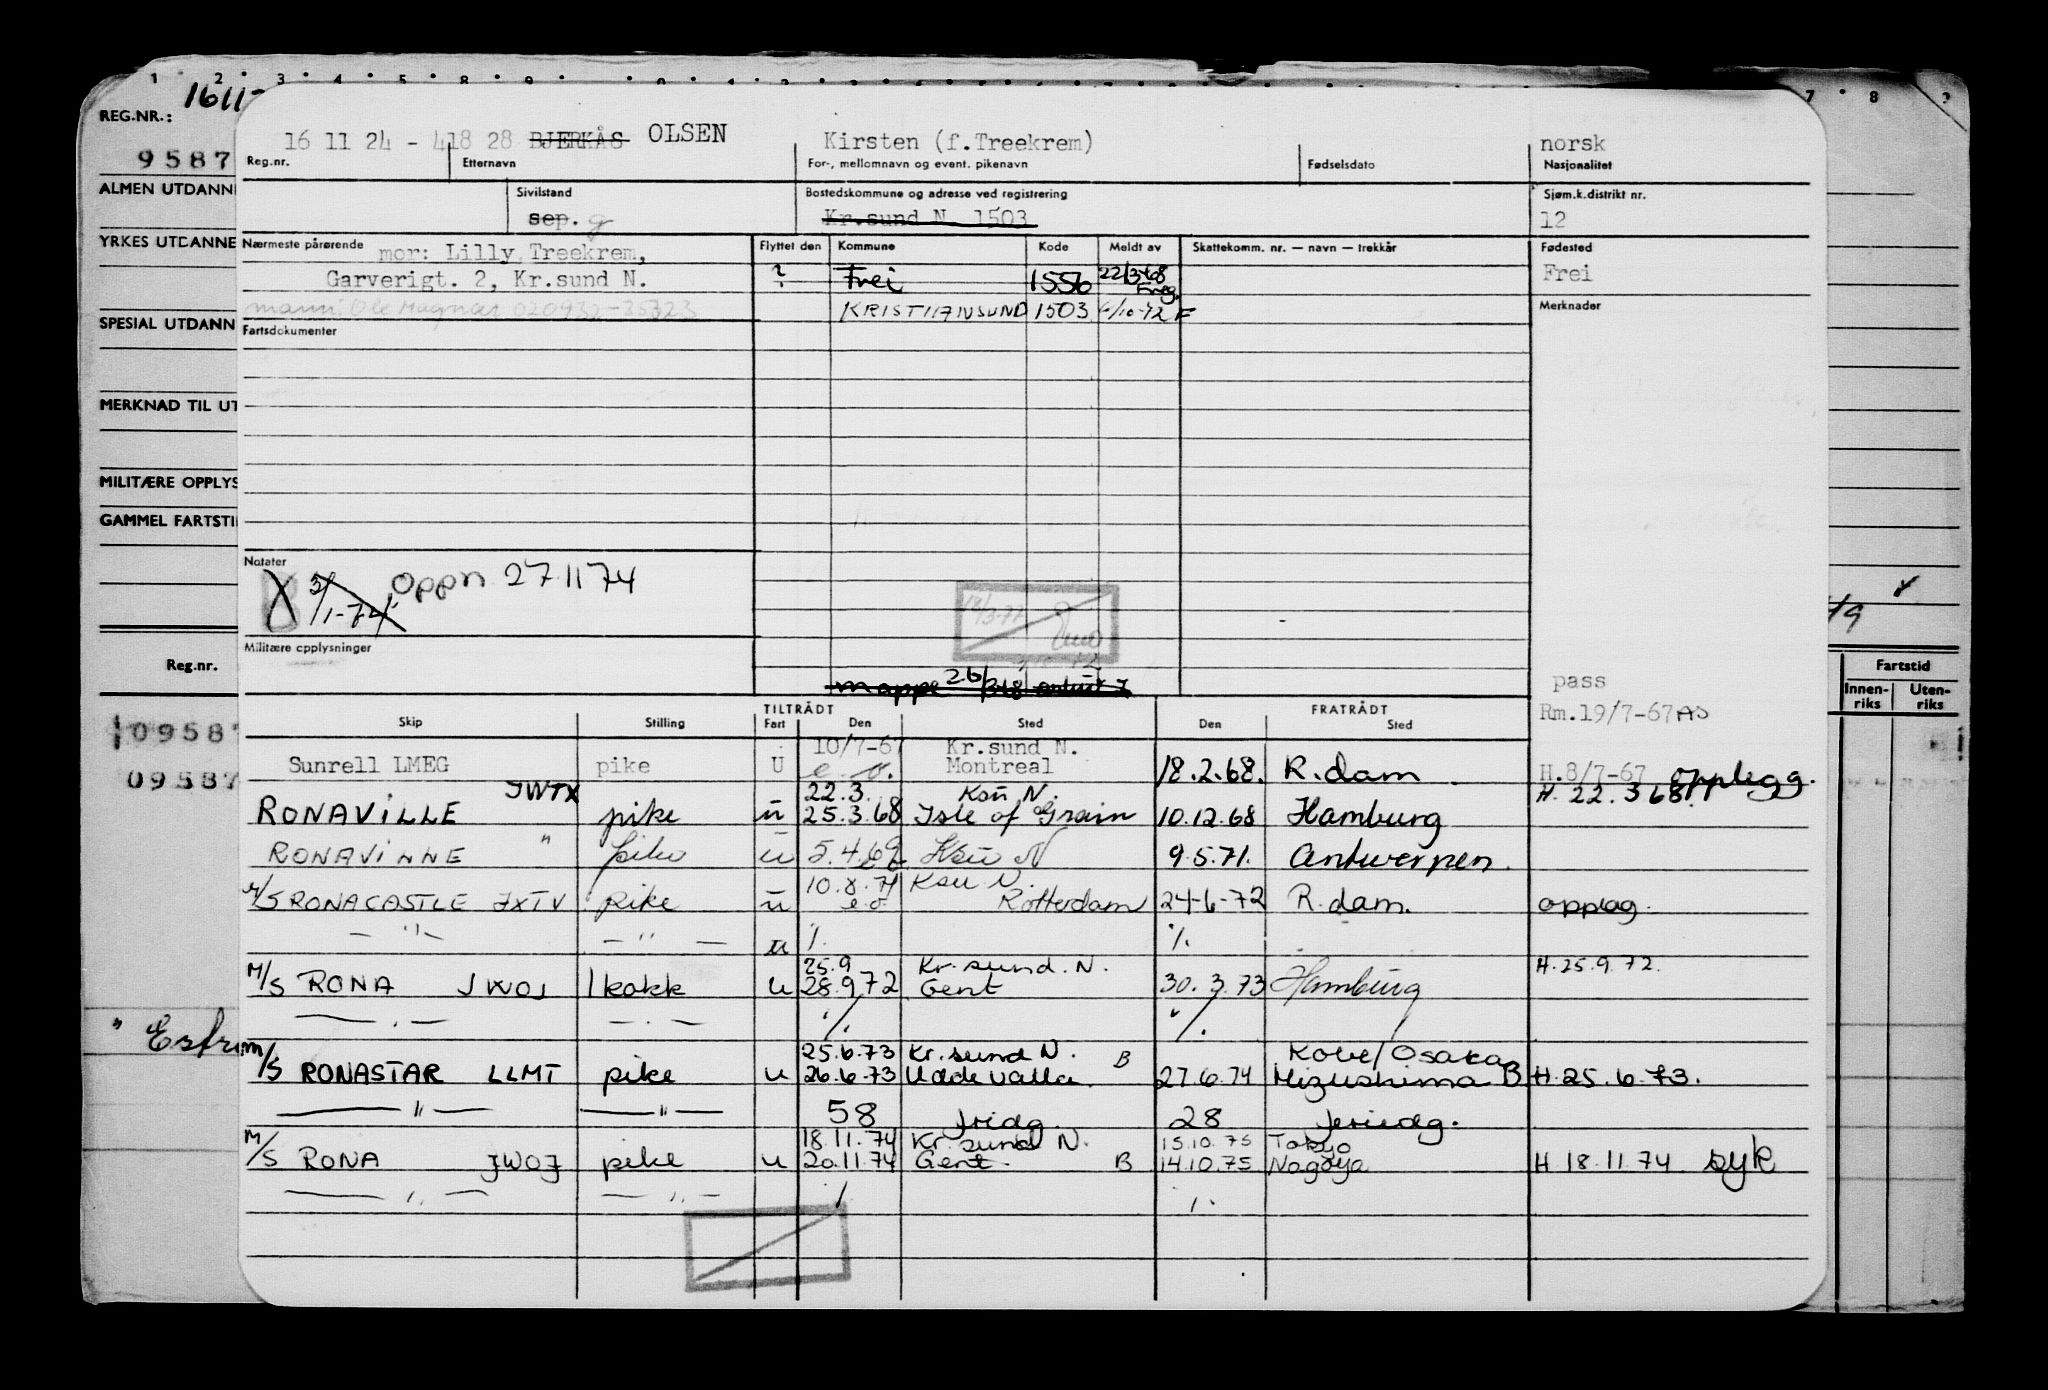 1 2 3 4 5 6 8 9 7 8
REG.NR.: 1611-
9587
ALMEN UTDANN
YRKES UTDANNE
SPESIAL UTDANN
MERKNAD TIL UT
MILITÆRE OPPLYS
GAMMEL FARTSTI
Reg.nr.
09587
09587
" Esfr
16 11 24 - 418 28 BJERKÅS OLSEN Kirsten (f.Treekrem) norsk
Reg.nr. Etternavn For-, mellomnavn og event. pikenavn Fødselsdato Nasjonalitet
Sivilstand Bostedskommune og adresse ved registrering Sjøm.k.distrikt nr.
sep. g Kr.sund N. 1503 12
Nærmeste pårørende Flyttet den Kommune Kode Meldt av Skattekomm. nr. — navn — trekkår Fødested
mor: Lilly Treekrem,
Garverigt. 2, Kr.sund N. ? Frei 1556 22/3-68 Freg. Frei
mann: Ole Magnar 020932-35323 KRISTIANSUND 1503 6/10-72 F Merknader
Fartsdokumenter
Notater
3/1-74 oppn 27 11 74
18/3-77
Militære opplysninger
mappe 26/3-68
pass
Rm.19/7-67 AS
TILTRÅDT FRATRÅDT
Skip Stilling Fart Den Sted Den Sted
Sunrell LMEG pike U 10/7-67 e.o. Kr.sund N. Montreal 18.2.68. R.dam H.8/7-67 opplegg.
RONAVILLE JWTX pike u 22.3. 25.3.68 Ksu N. Isle of Grain 10.12.68 Hamburg H. 22.3 68.
RONAVINNE " pike u 5.4.69 Ksu N 9.5.71. Antwerpen.
M/S RONACASTLE JXTV pike u 10.8.71 e.o. Ksu N. Rotterdam 24-6-72 R.dam. opplag.
— " — — " — u /. /.
M/S RONA JWOJ kokk u 25.9 28.9.72 Kr.sund.N. Gent 30.3.73 Hamburg H.25.9.72.
— . — — . — /. /.
M/S RONASTAR LLMT pike u 25.6.73 26.6.73 Kr.sund N. Uddevalla. B 27.6.74 Kobe/Osaka Mizushima B H.25.6.73.
— " — — " — 58 fridg. 28 feriedg.
M/S RONA JWOJ pike u 18.11.74 20.11.74 Kr.sund N. Gent. B 15.10.75 14.10.75 Tokyo Nagoya H 18.11.74 syk
— " — — " — / /.
Fartstid
Innen-riks Uten-riks